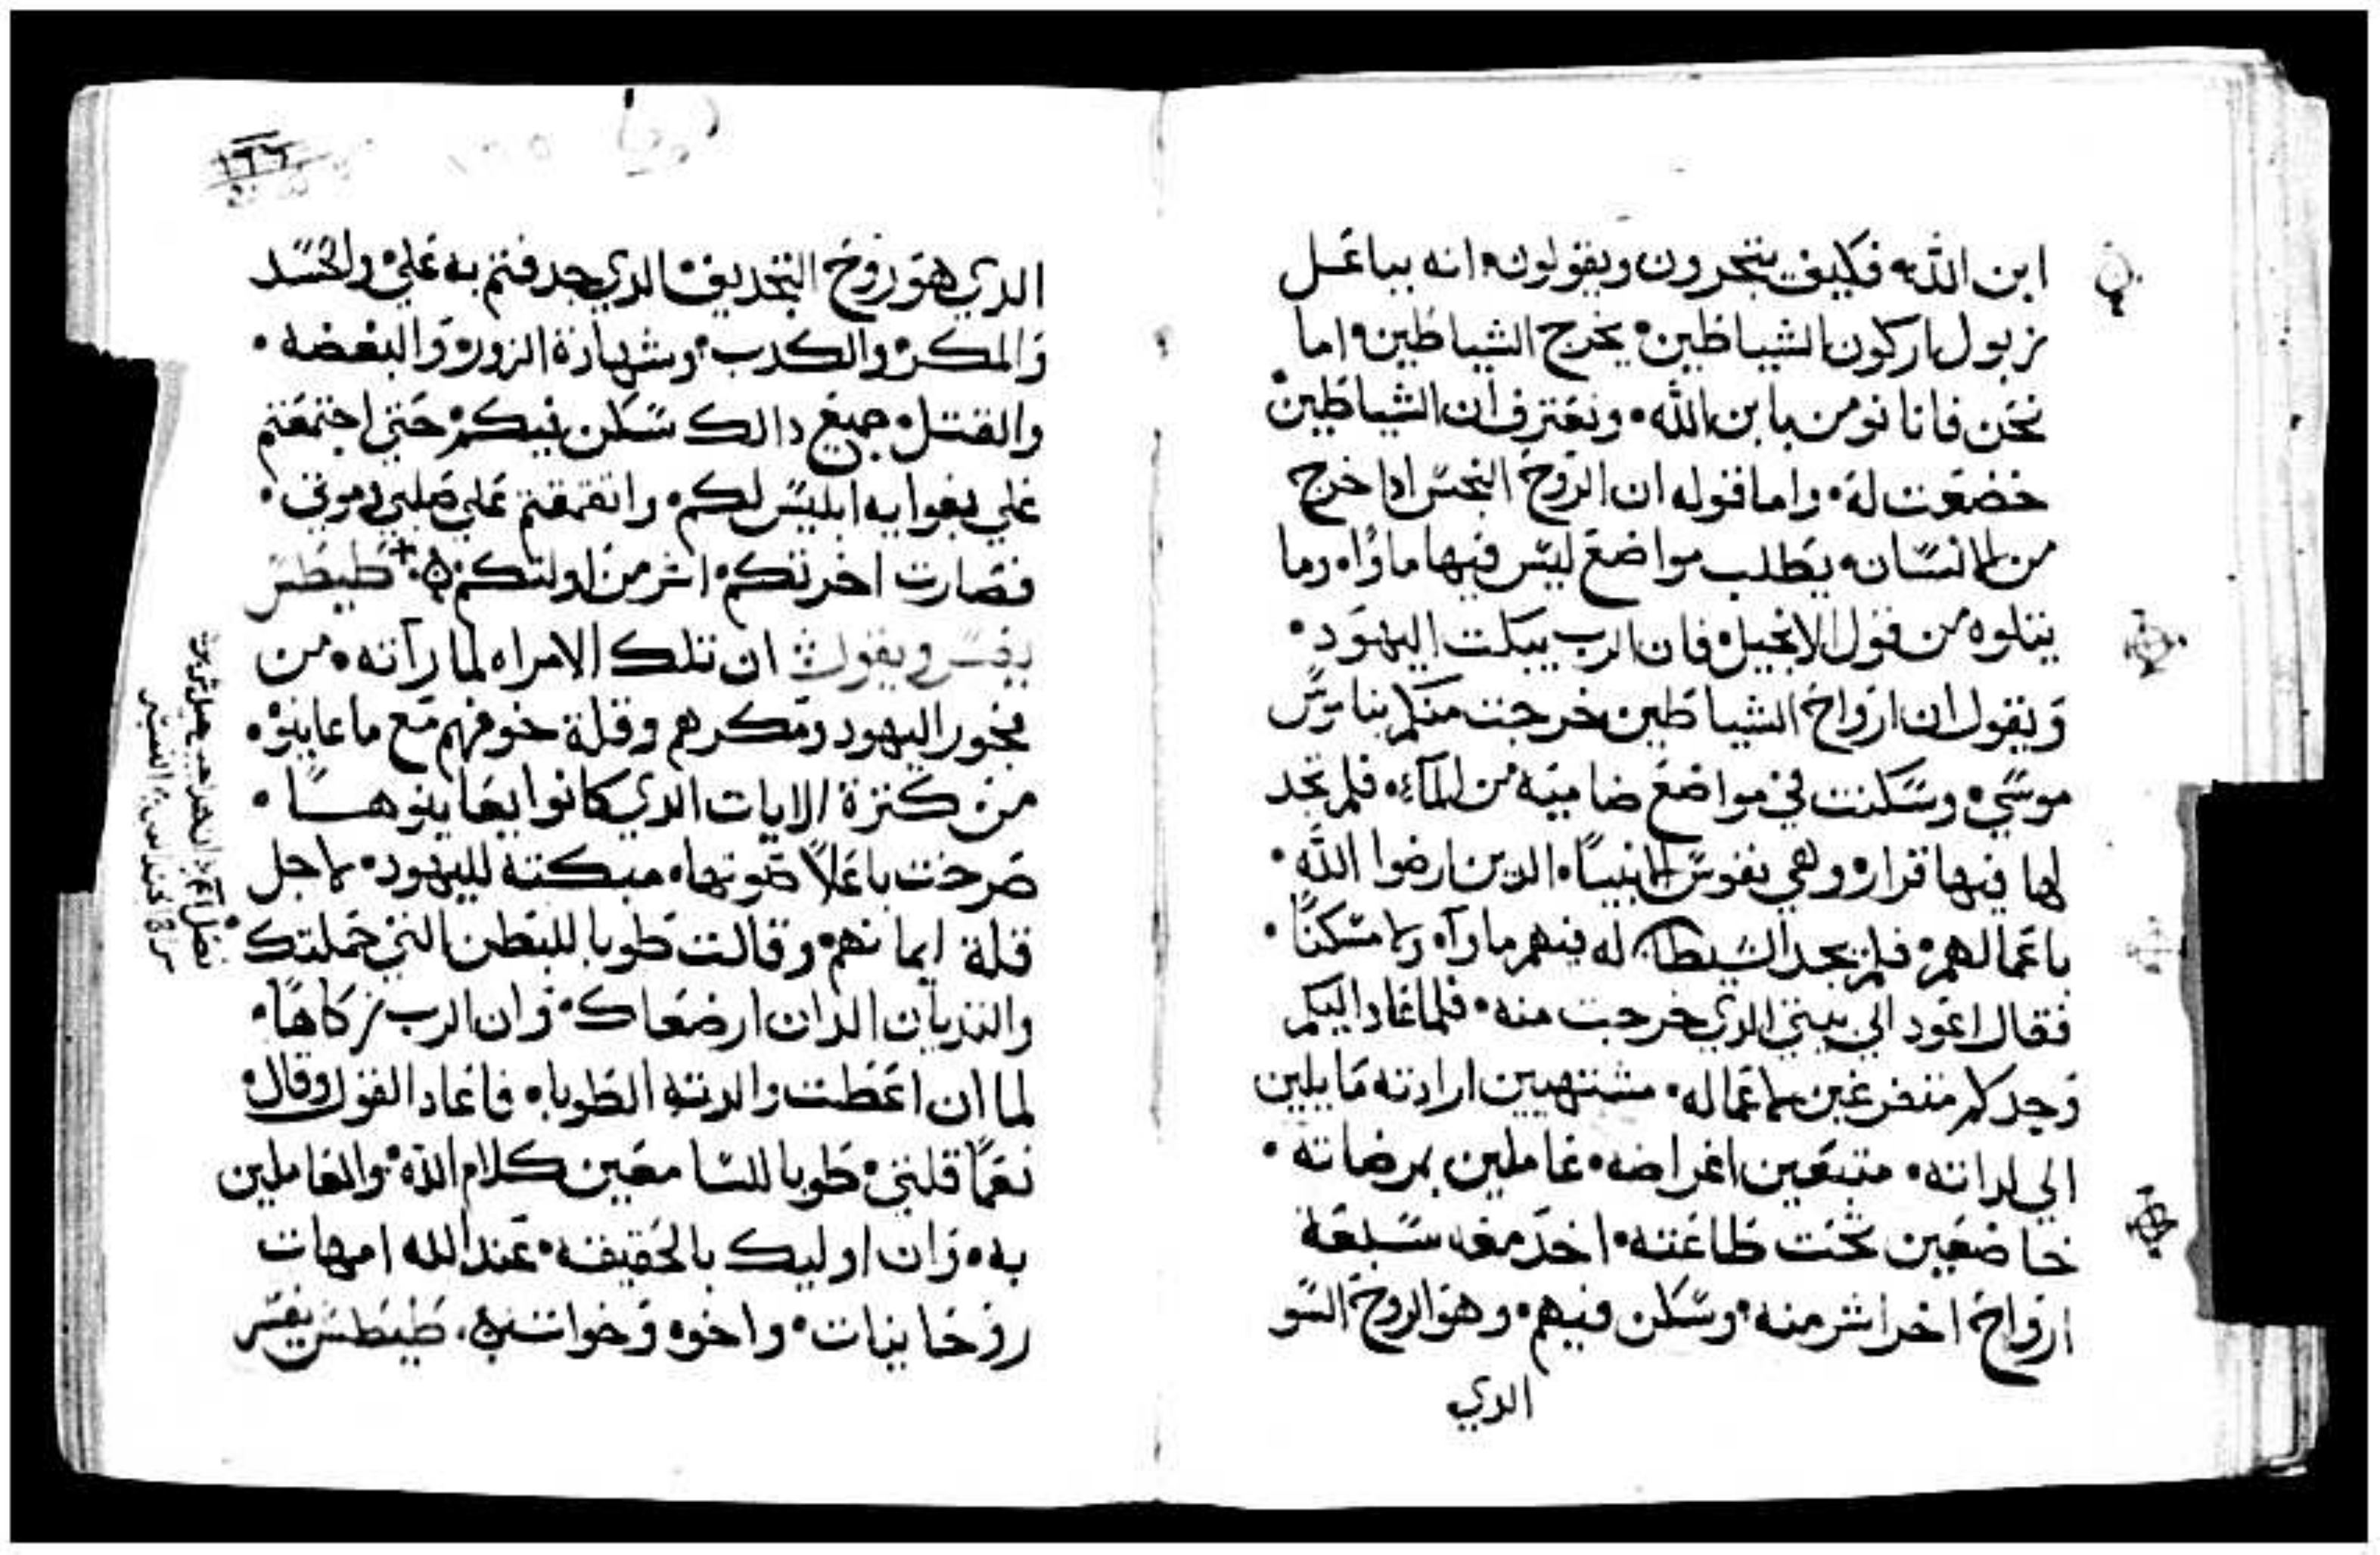 ابن الله فكيف يتجرون ويقولون انه بباعل
زبول اركون الشياطين يخرج الشياطين اما
نحن فانا نومن بابن الله ونعترف ان الشياطين
خضعت له واما قوله ان الروح النجس ادا خرج
من الانسان يطلب مواضع ليس فيها ماوا وما
يتلوه من قول الانجيل فان الرب يبكت اليهود
ويقول ان ارواح الشياطين خرجت منكم بناموس
موسي وسكنت في مواضع ضاميه من المآء فلم تجد
لها فيها قرار وهي نفوس الانبيا الدين ارضوا الله
باعمالهم فلم يجد الشيطان له فيهم ماوآه ولا مسكنا
فقال اعود الي بيتي الدي خرجت منه فلما عاد اليكم
وجدكم متفرغين لاعماله مشتهيين ارادته مايلين
الي لداته متبعين اغراضه عاملين بمرضاته
خاضعين تحت طاعته اخد معه سبعة
ارواح اخر اشر منه وسكن فيهم وهو الروح السو
الدي
١٢٦
الدي هو روح التجديف الدي جدفتم به علي والحسد
والمكر والكدب وشهادة الزور والبغضه
والقتل جميع دالك سكن فيكم حتي اجتمعتم
علي يغوايه ابليس لكم واتفقتم علي صلبي وموتي
فصارت اخرتكم اشر من اولتكم طيطس
يفسر ويقول ان تلك الامراه لما رآته من
فجور اليهود ومكرهم وقلة خوفهم مع ما عاينوه
من كترة الايات الدي كانوا يعاينوها
صرخت باعلا صوتها مبكته لليهود لاجل
قلة ايمانهم وقالت طوبا للبطن التي حملتك
والتديان الدان ارضعاك وان الرب زكاها
لما ان اعطت والدته الطوبا فاعاد القول وقال
نعما قلتي طوبا للسامعين كلام الله والعاملين
به وان اوليك بالحقيقه عند الله امهات
روحانيات واخوه وخوات طيطس يفسر